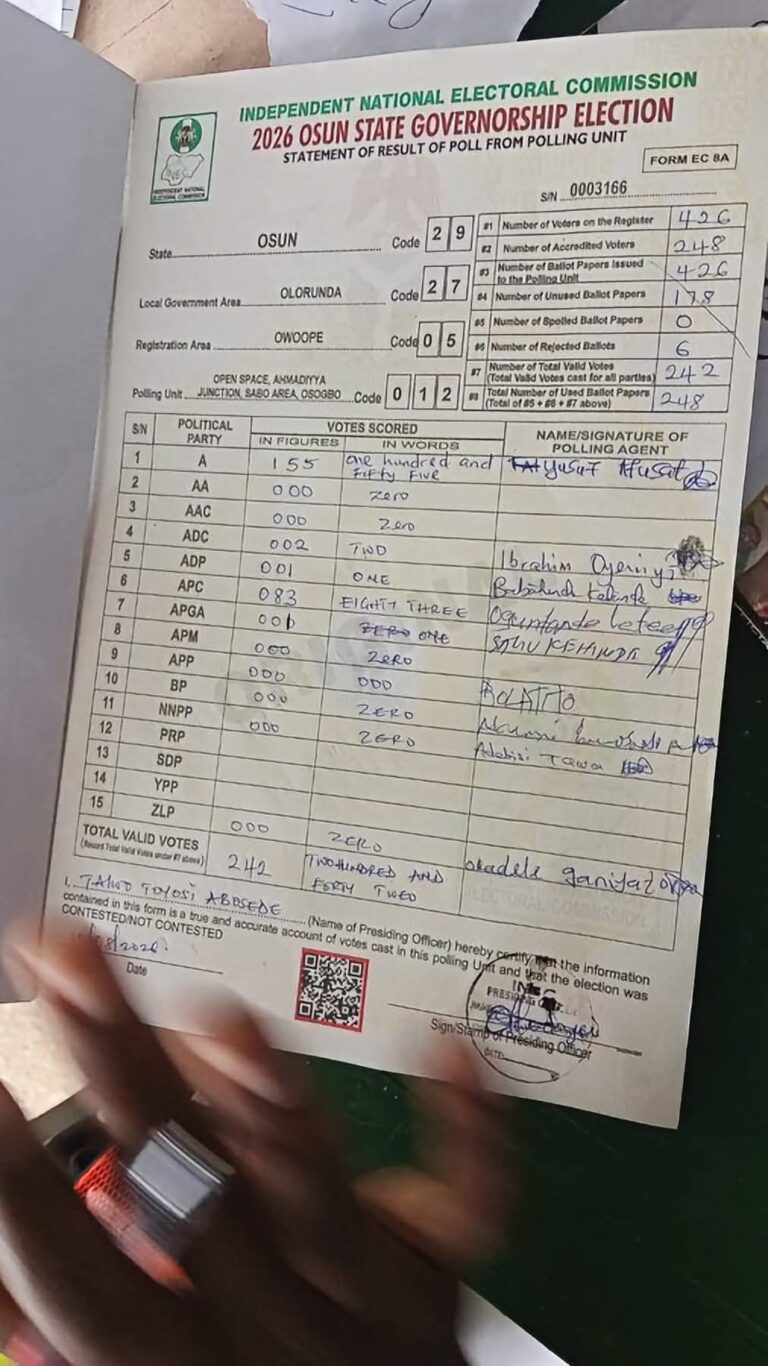 INDEPENDENT NATIONAL ELECTORAL COMMISSION
2026 OSUN STATE GOVERNORSHIP ELECTION
STATEMENT OF RESULT OF POLL FROM POLLING UNIT
INDEPENDENT NATIONAL ELECTORAL COMMISSION
FORM EC 8A
S/N 0003166
State OSUN Code 2 9
Local Government Area OLORUNDA Code 2 7
Registration Area OWOOPE Code 0 5
Polling Unit OPEN SPACE, AHMADIYYA JUNCTION, SABO AREA, OSOGBO Code 0 1 2
#1 Number of Voters on the Register 426
#2 Number of Accredited Voters 248
#3 Number of Ballot Papers Issued to the Polling Unit 426
#4 Number of Unused Ballot Papers 178
#5 Number of Spoiled Ballot Papers 0
#6 Number of Rejected Ballots 6
#7 Number of Total Valid Votes (Total Valid Votes cast for all parties) 242
#8 Total Number of Used Ballot Papers (Total of #5 + #6 + #7 above) 248
S/N POLITICAL PARTY VOTES SCORED NAME/SIGNATURE OF POLLING AGENT
IN FIGURES IN WORDS
1 A 155 one hundred and Fifty Five
2 AA 000 Zero
3 AAC 000 Zero
4 ADC 002 TWO Ibrahim
5 ADP 001 ONE
6 APC 083 EIGHTY THREE
7 APGA 001 ZERO ONE KEHINDE
8 APM 000 ZERO
9 APP 000 000
10 BP 000 ZERO
11 NNPP 000 ZERO Tawa
12 PRP
13 SDP
14 YPP
15 ZLP 000 ZERO
TOTAL VALID VOTES (Record Total Valid Votes under #7 above) 242 TWO HUNDRED AND FORTY TWO ganiyat
I, TAIWO TOYOSI ABOSEDE (Name of Presiding Officer) hereby certify that the information
contained in this form is a true and accurate account of votes cast in this polling Unit and that the election was
CONTESTED/NOT CONTESTED
/08/2026
Date
INEC
PRESIDING OFFICER
NAME
DATE
Sign/Stamp of Presiding Officer